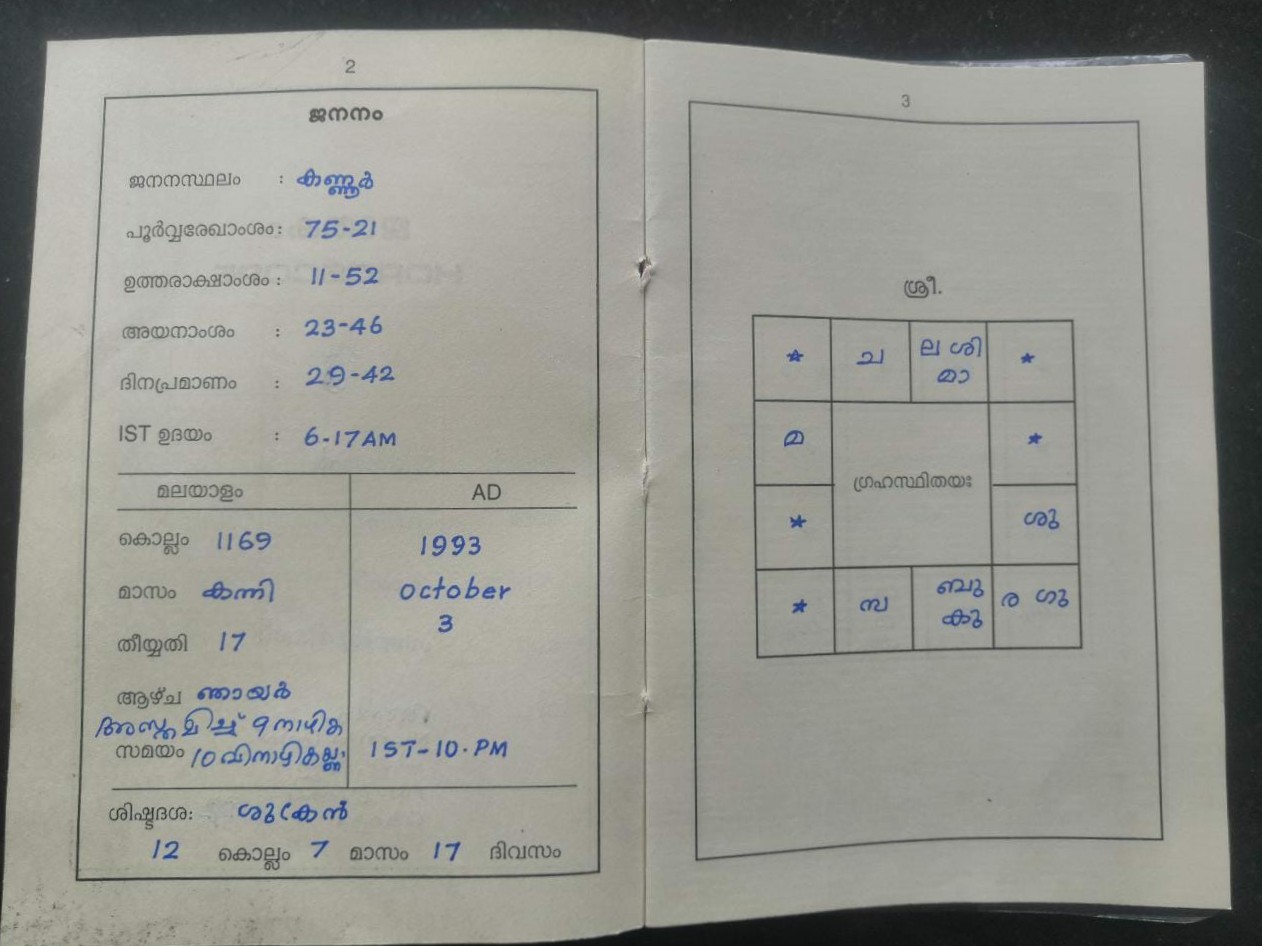 2
ജനനം
ജനനസ്ഥലം : കണ്ണൂർ
പൂർവ്വരേഖാംശം : 75-21
ഉത്തരാക്ഷാംശം : 11-52
അയനാംശം : 23-46
ദിനപ്രമാണം : 29-42
IST ഉദയം : 6-17AM
മലയാളം AD
കൊല്ലം 1169 1993
മാസം കന്നി October
തീയ്യതി 17 3
ആഴ്ച ഞായർ
അസ്തമിച്ച് 9 നാഴിക
സമയം 10 വിനാഴികക്ക് IST-10.PM
ശിഷ്ടദശ: ശുക്രൻ
12 കൊല്ലം 7 മാസം 17 ദിവസം
3
ശ്രീ.
* ച ല ശി *
മാ
മ *
ഗ്രഹസ്ഥിതയഃ
* ശു
* സ ബു ര ഗു
കു